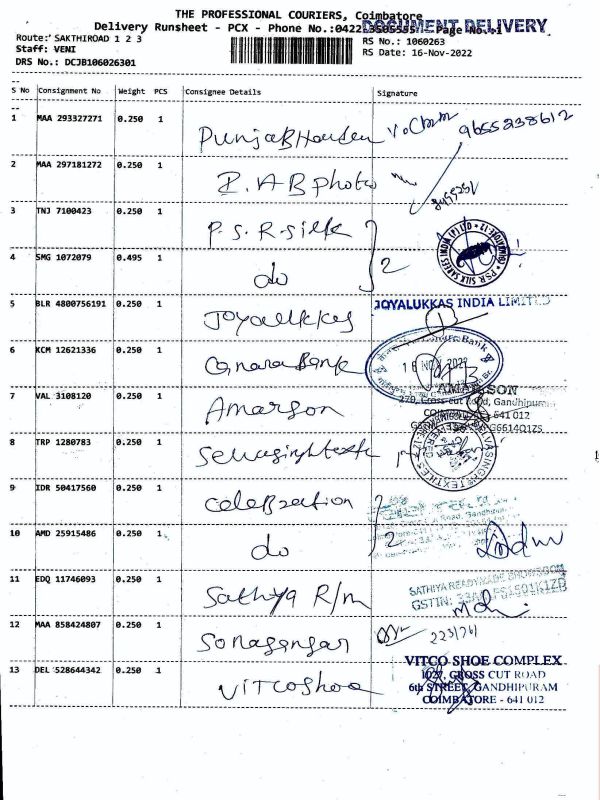 THE PROFESSIONAL COURIERS, Coimbatore
Delivery Runsheet - PCX - Phone No.:0422 Page No.:1
DOCUMENT DELIVERY
Route: SAKTHIROAD 1 2 3
RS No.: 1060263
Staff: VENI
RS Date: 16-Nov-2022
DRS No.: DCJB106026301
S No Consignment No Weight PCS Consignee Details Signature
1 MAA 293327271 0.250 1 9655238612
2 MAA 297181272 0.250 1 I.A B photo
3 TNJ 7100423 0.250 1 P.S.R.silk
PSR SILK SAREES INDIA (P) LTD
4 SMG 1072079 0.495 1 do 2
5 BLR 4800756191 0.250 1 Joyalukkas JOYALUKKAS INDIA LIMITED
6 KCM 12621336 0.250 1 Canara Bank 16 NOV 2022
7 VAL 3108120 0.250 1 Amarson AMARSON
270, Cross cut Road, Gandhipuram
641 012
8 TRP 1280783 0.250 1
9 IDR 50417560 0.250 1 celebration
10 AMD 25915486 0.250 1 do 2
11 EDQ 11746093 0.250 1 Sathya R/m SATHIYA READYMADE SHOWROOM
GSTIN:
12 MAA 858424807 0.250 1
13 DEL 528644342 0.250 1 Vitcoshoe VITCO SHOE COMPLEX
1027, CROSS CUT ROAD
6th STREET, GANDHIPURAM
COIMBATORE - 641 012